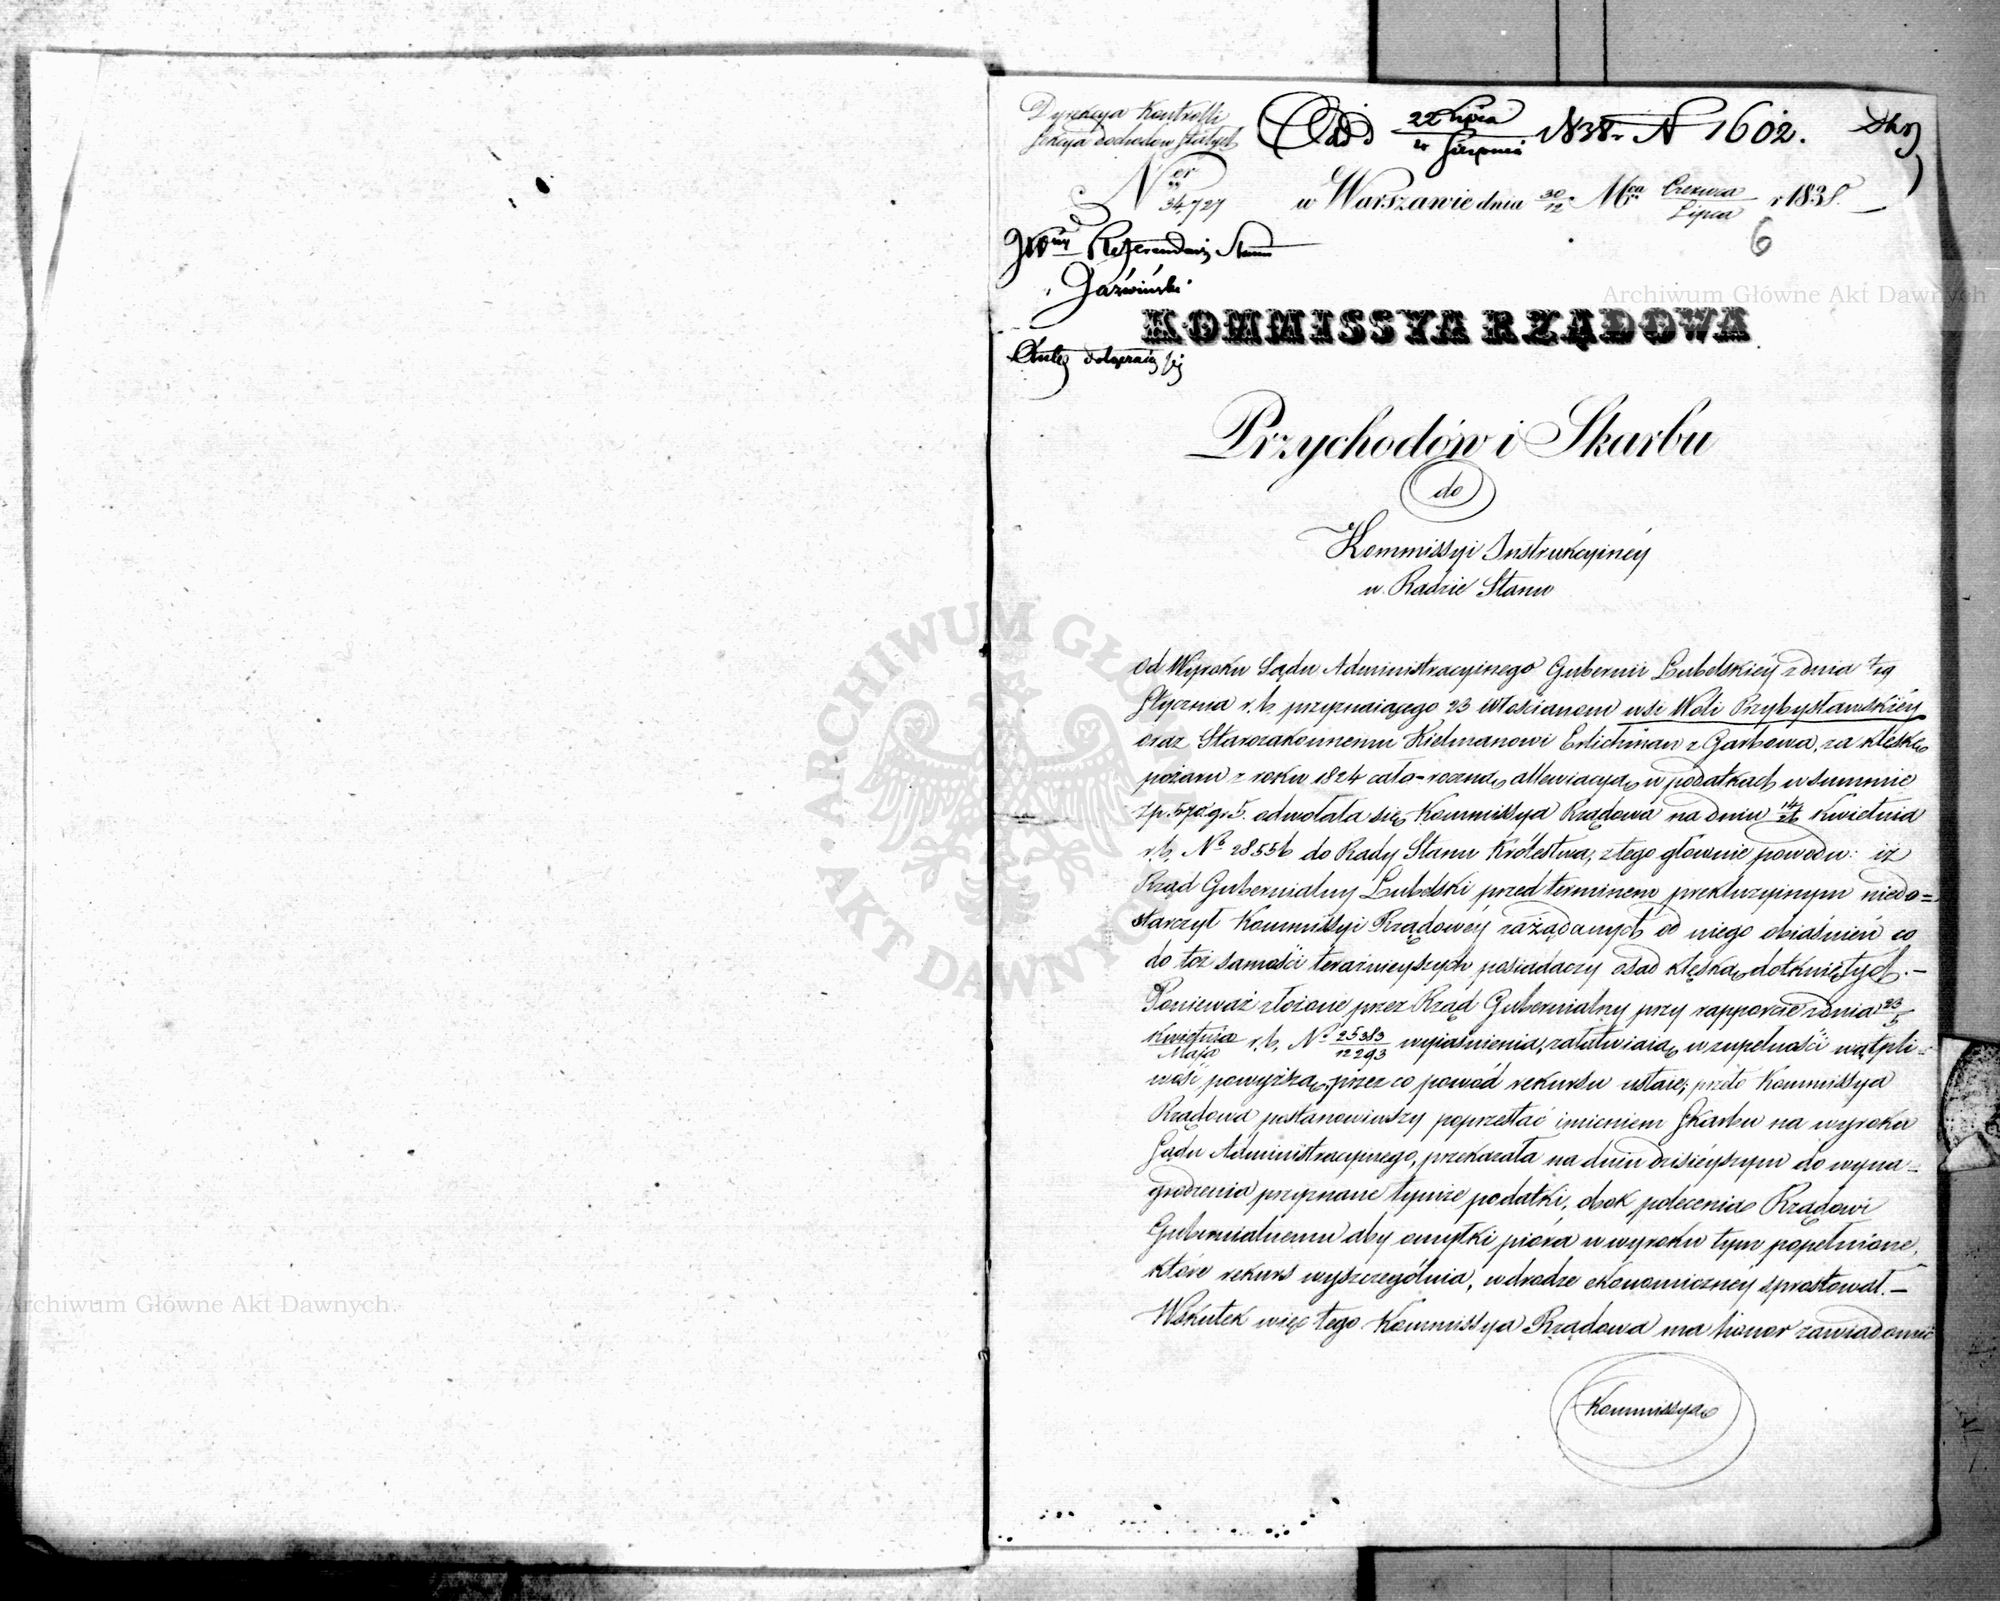 Dyrekcya Kontrolli
Sekcya dochodów stałych
Odd 22 Lipca / Sierpnia 1838 r. N 1602.
Nr 34,727
w Warszawie dnia 30/12 Mca Czerwca/Lipca r 1838.
6
JWny Referendarz Stanu
Gaźwiński
KOMMISSYA RZĄDOWA
Przychodów i Skarbu
do
Kommissyi Instrukcyinéy
w Radzie Stanu
Od Wyroku Sądu Administracyinego Gubernii Lubelskiéy z dnia 7/19
Stycznia r. b. przyznaiącego 23 włościanom wsi Woli Przybysławskiéy
oraz Starozakonnemu Kielmanowi Erlichman z Garbowa, za klęskę
pożaru z roku 1824 cało=roczną allewiacyą w podatkach w summie
Zp. 570 g. 5. odwołała się Kommissya Rządowa na dniu 14/26 Kwietnia
r. b. No 28556 do Rady Stanu Królestwa, z tego głównie powodu: iż
Rząd Gubernialny Lubelski przed terminem prekluzyinym niedo=
starczył Kommissyi Rządowéy zażądanych od niego obiaśnień co
do toż samości teraźnieyszych posiadaczy osad klęską dotkniętych. —
Ponieważ złożone przez Rząd Gubernialny przy rapporcie z dnia 23/5
Kwietnia/Maja r. b. No 25383/12293 wyiaśnienia, załatwiaią w zupełności wątpli=
wość powyższą, przez co powód rekursu ustaie; przeto Kommissya
Rządowa postanowiwszy poprzestać imieniem Skarbu na wyroku
Sądu Administracyinego, przekazała na dniu dzisieyszym do wyna=
grodzenia przyznane tymże podatki, obok polecenia Rządowi
Gubernialnemu aby omyłki pióra w wyroku tym popełnione,
które rekurs wyszczególnia, w drodze ekonomicznéy sprostował. —
Wskutek więc tego Kommissya Rządowa ma honor zawiadomić
Kommissyą
Archiwum Główne Akt Dawnych
ARCHIWUM GŁÓWNE AKT DAWNYCH
Archiwum Główne Akt Dawnych